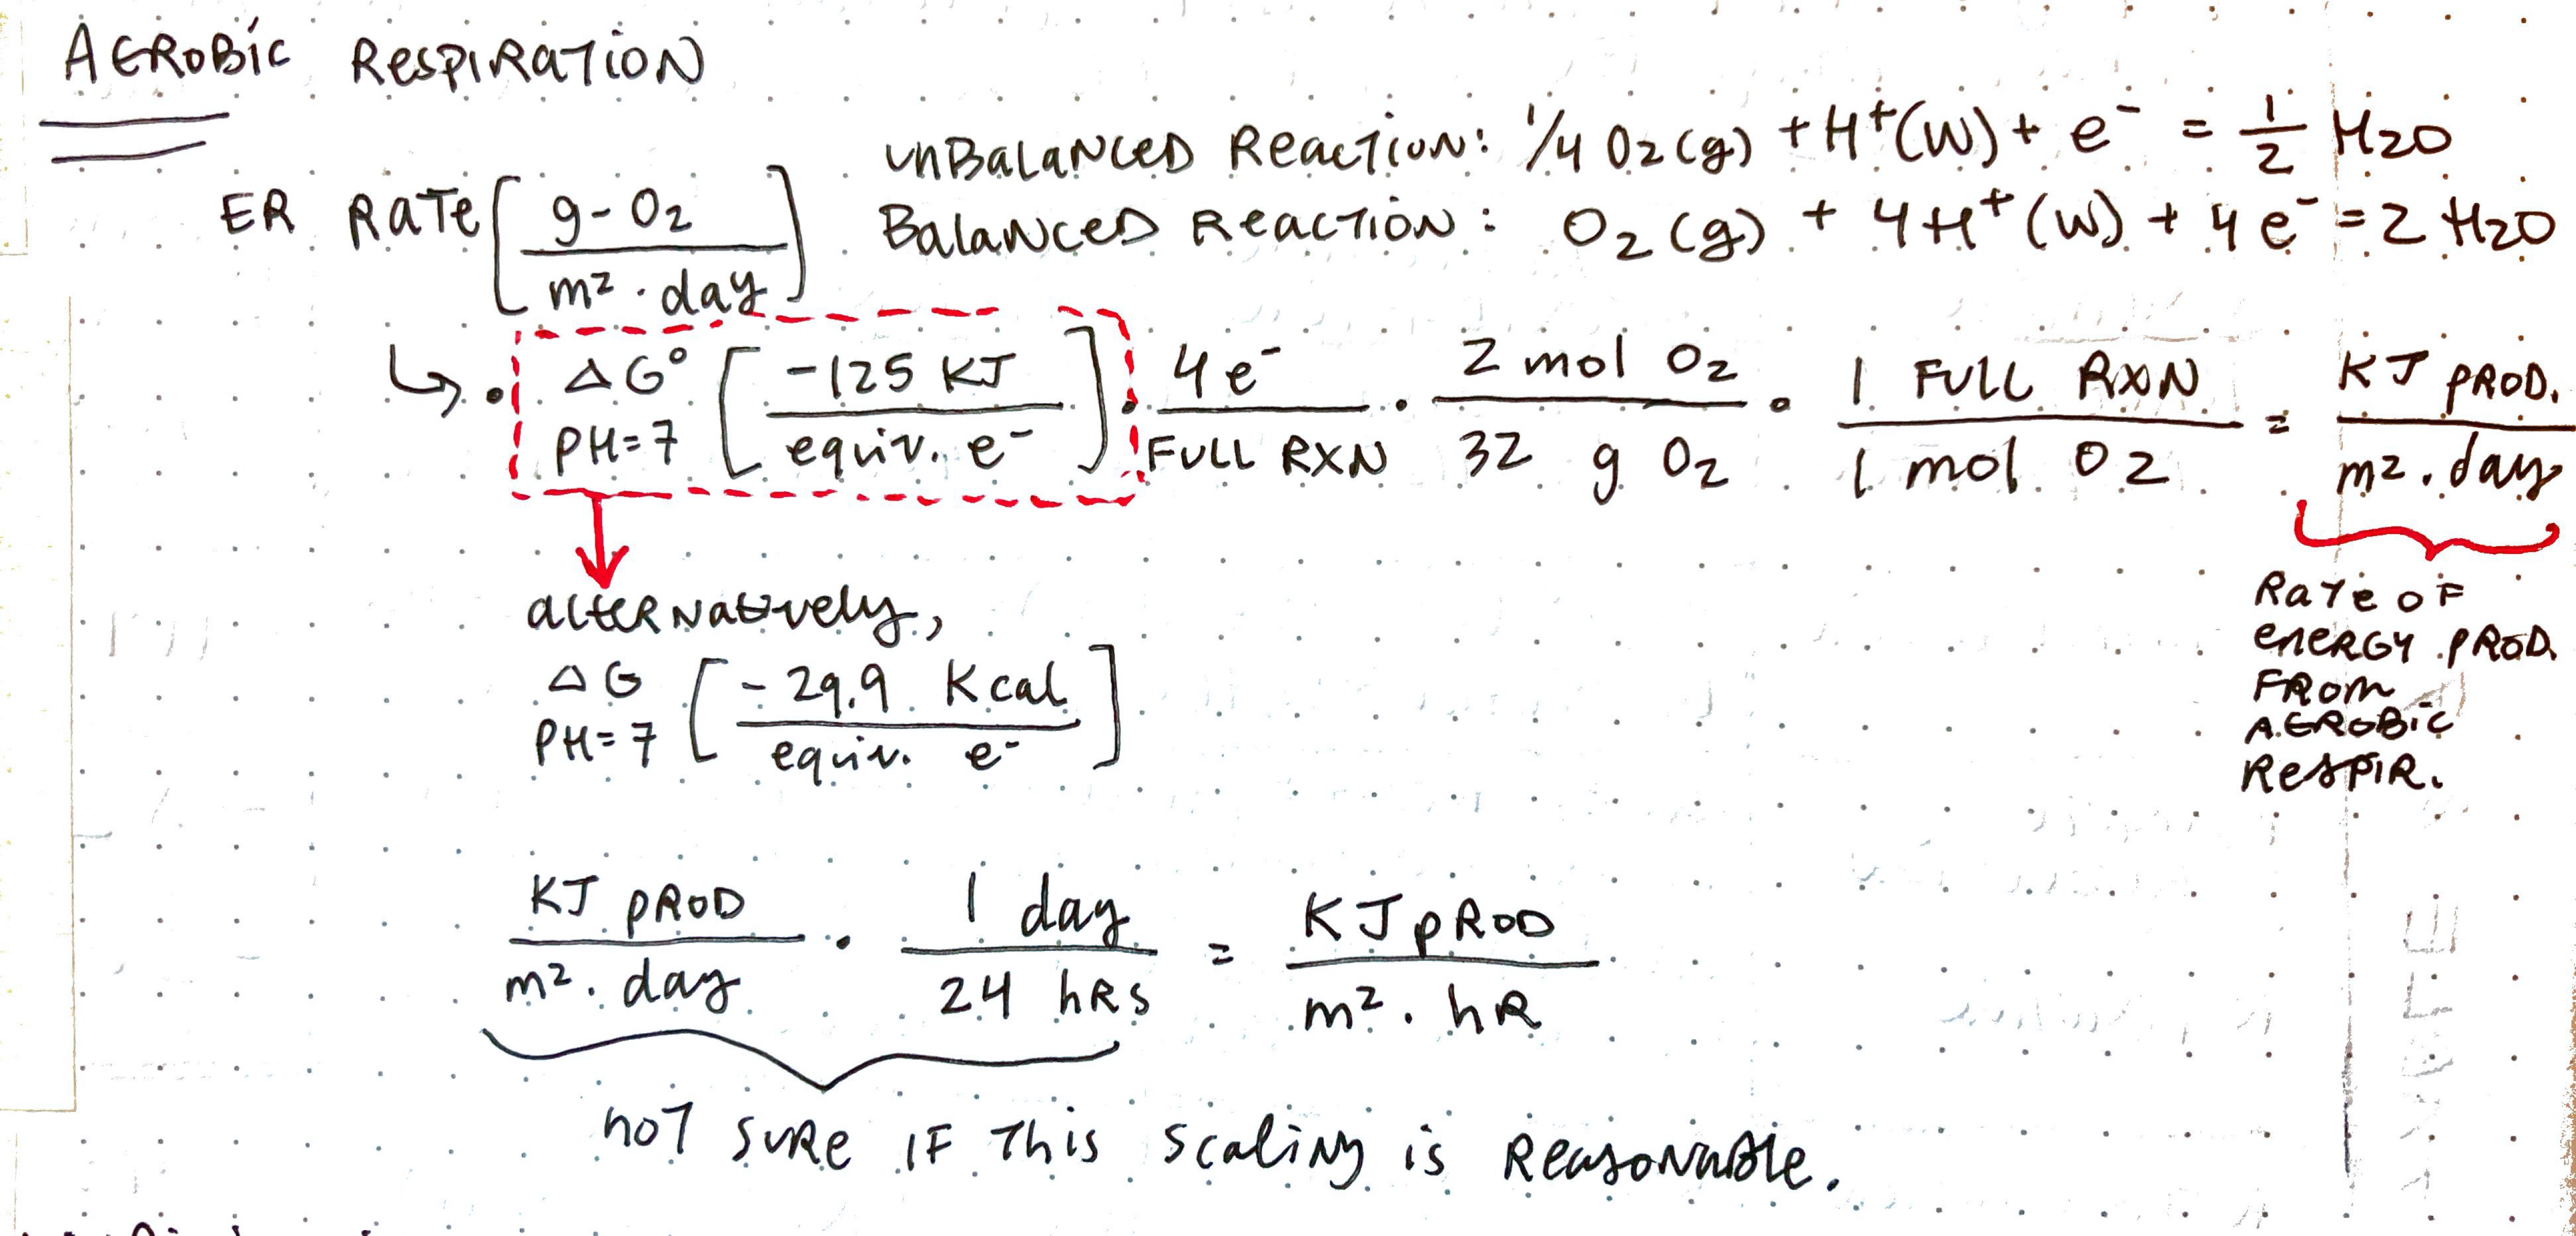 AEROBIC RESPIRATION
UNBALANCED REACTION: 1/4 O2 (g) + H+ (W) + e- = 1/2 H2O
ER RATE [g-O2 / m2 · day]
BALANCED REACTION: O2 (g) + 4H+ (W) + 4e- = 2 H2O
↳ · ΔG° PH=7 [-125 KJ / equiv. e-] · 4e- / FULL RXN · 2 mol O2 / 32 g O2 · 1 FULL RXN / 1 mol O2 = KJ PROD. / m2 · day
RATE OF
ENERGY PROD.
FROM
AEROBIC
RESPIR.
alternatively,
ΔG PH=7 [-29.9 Kcal / equiv. e-]
KJ PROD / m2 · day · 1 day / 24 hRs = KJ PROD / m2 · hR
not SURE IF This scaling is Reasonable.